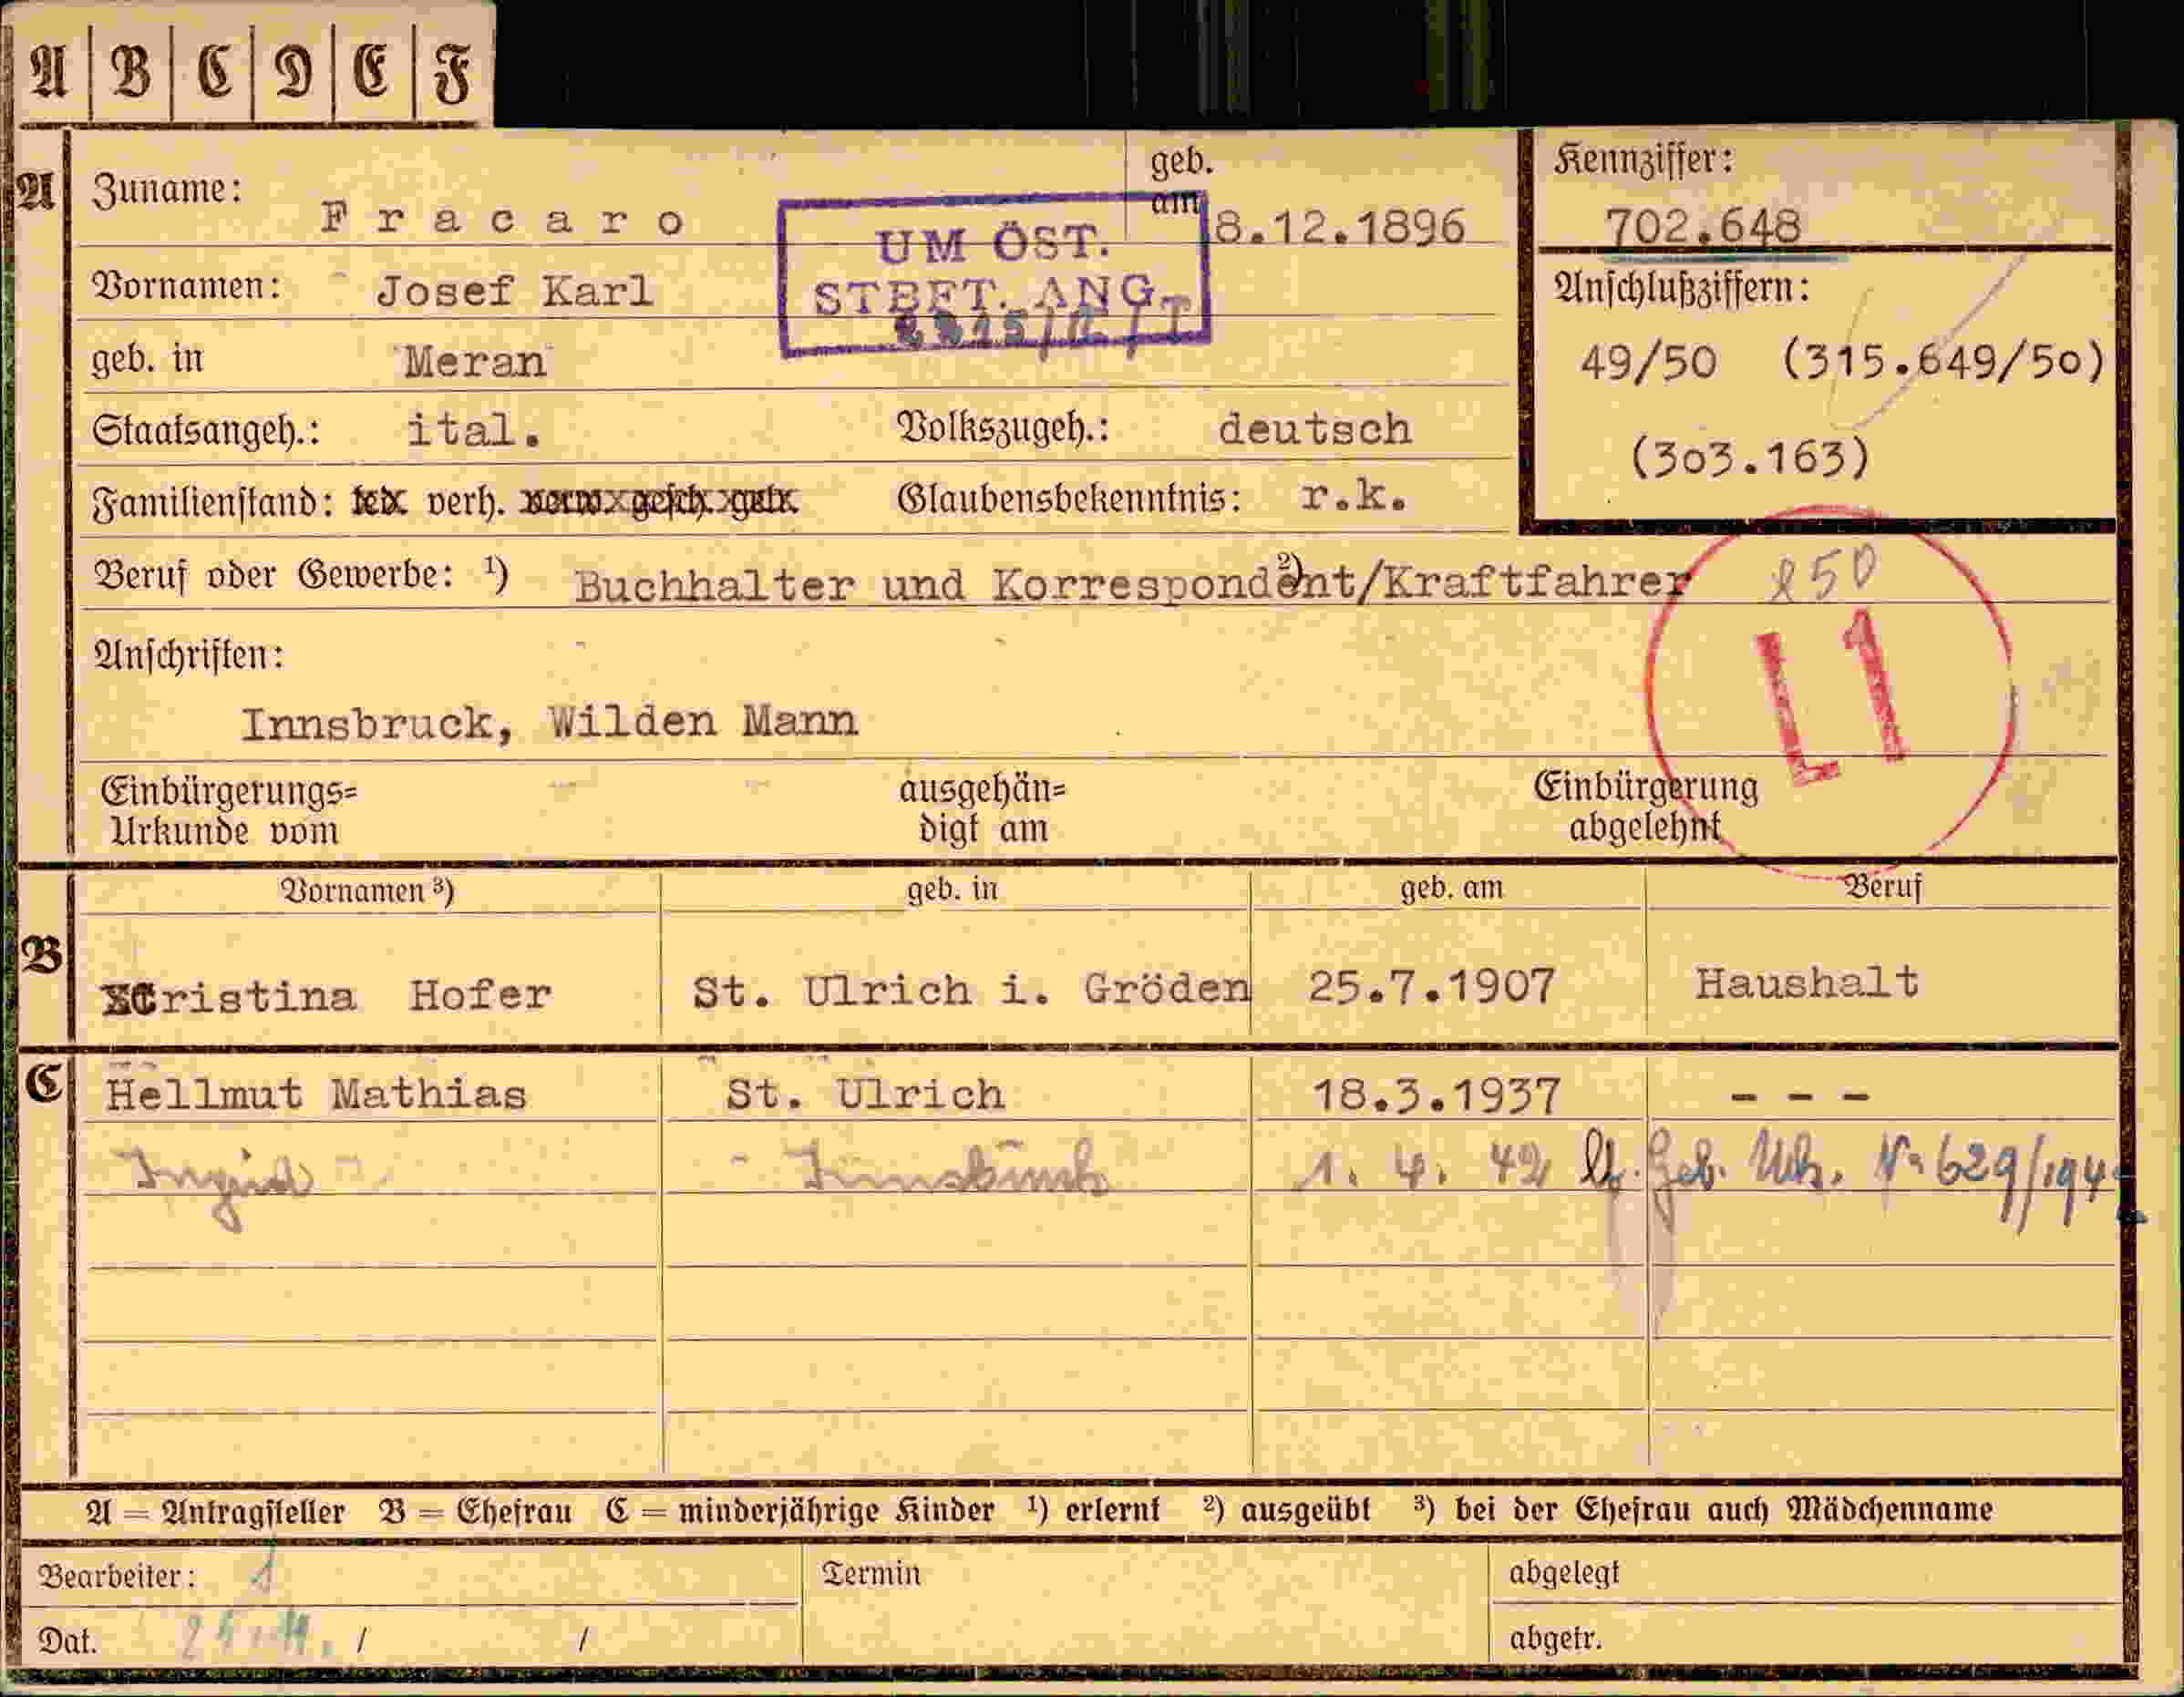 A B C D E F
A Zuname: Fracaro geb. am 8.12.1896
UM ÖST.
STBFT. ANG.
Kennziffer:
702.648
Vornamen: Josef Karl
Anschlußziffern:
geb. in Meran
49/50 (315.649/50)
Staatsangeh.: ital. Volkszugeh.: deutsch
(303.163)
Familienstand: led. verh. verw. gesch. getr. Glaubensbekenntnis: r.k.
Beruf oder Gewerbe: ¹) Buchhalter und Korrespondent/Kraftfahrer ²)
L1
Anschriften:
Innsbruck, Wilden Mann
Einbürgerungs= ausgehän= Einbürgerung
Urkunde vom digt am abgelehnt
Vornamen ³) geb. in geb. am Beruf
B Cristina Hofer St. Ulrich i. Gröden 25.7.1907 Haushalt
C Hellmut Mathias St. Ulrich 18.3.1937 - - -
Ingrid Innsbruck 1. 4. 42 lt. Geb. Urk. No 629/1942
A = Antragsteller B = Ehefrau C = minderjährige Kinder ¹) erlernt ²) ausgeübt ³) bei der Ehefrau auch Mädchenname
Bearbeiter: 1 Termin abgelegt
Dat. / / abgetr.